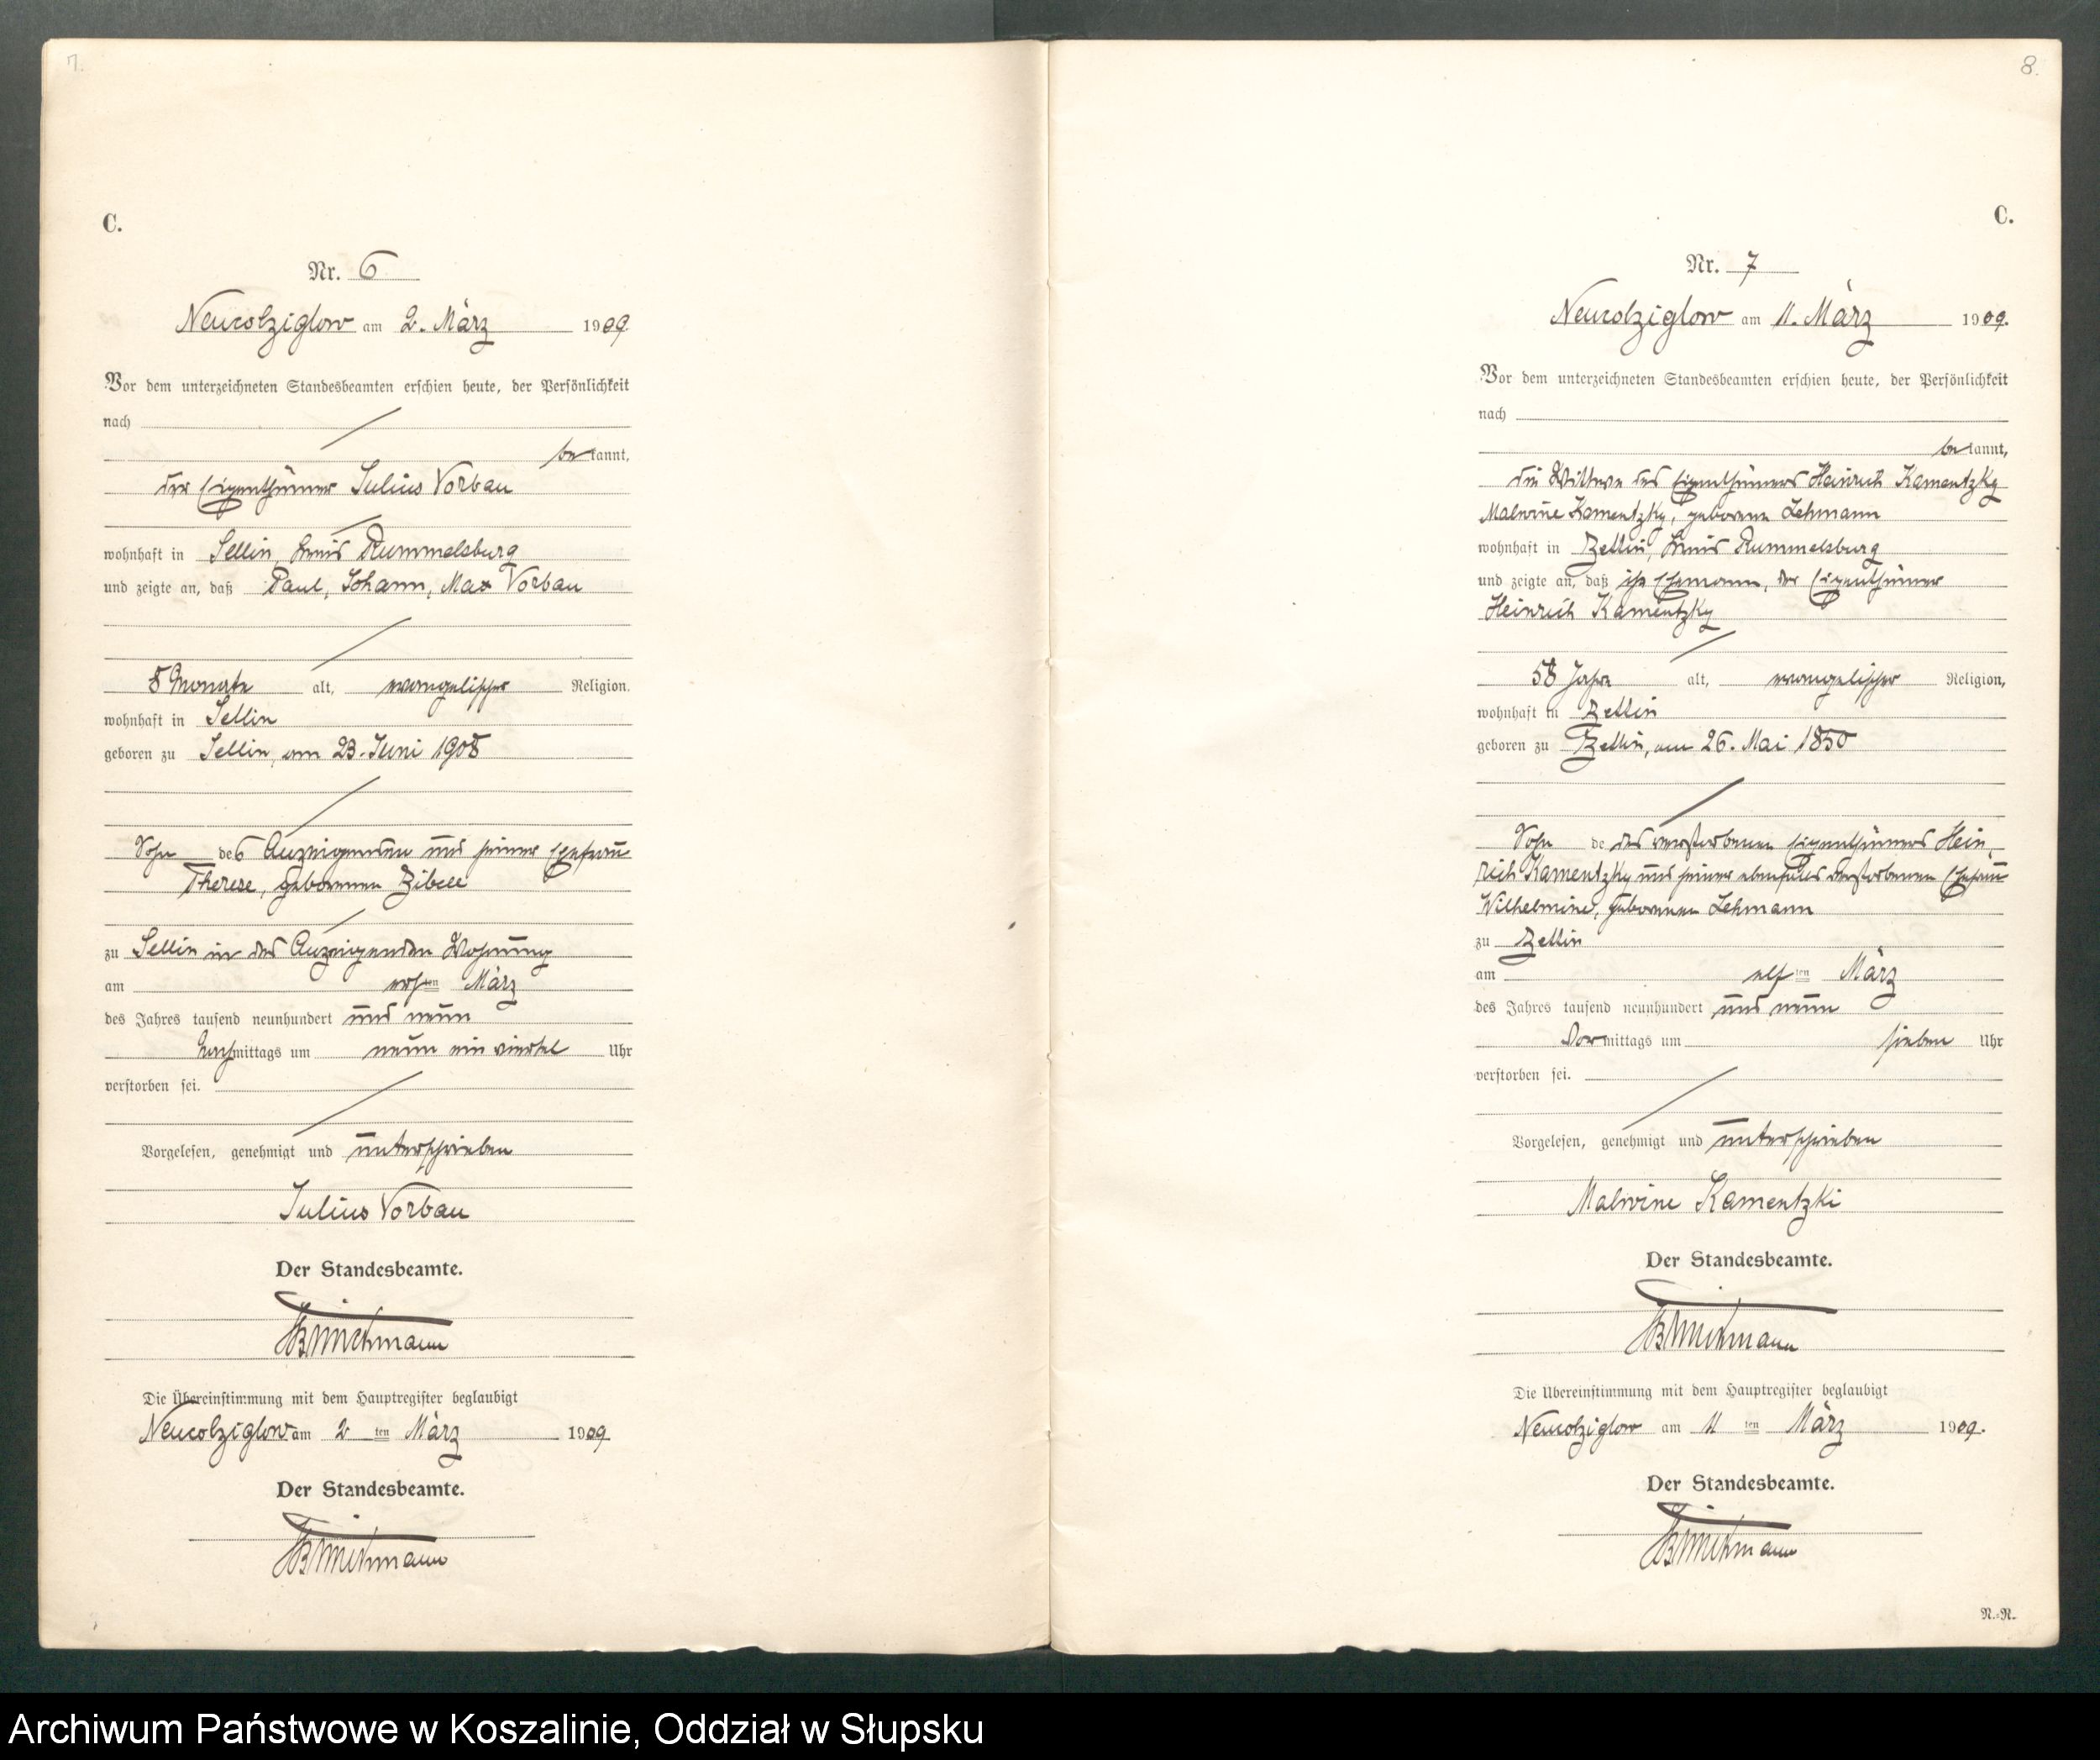 7.
C.
Nr. 6
Neucolziglow am 2. März 1909.
Vor dem unterzeichneten Standesbeamten erschien heute, der Persönlichkeit
nach
bekannt,
der Eigenthümer Julius Vorbau
wohnhaft in Sellin, Kreis Rummelsburg
und zeigte an, daß Paul, Johann, Max Vorbau
8 Monate alt, evangelischer Religion,
wohnhaft in Sellin
geboren zu Sellin, am 23. Juni 1908
Sohn des Anzeigenden und seiner Ehefrau
Therese, geborenen
zu Sellin in des Anzeigenden Wohnung
am ersten März
des Jahres tausend neunhundert und neun
Nachmittags um neun ein viertel Uhr
verstorben sei.
Vorgelesen, genehmigt und unterschrieben
Julius Vorbau
Der Standesbeamte.
Die Übereinstimmung mit dem Hauptregister beglaubigt
Neucolziglow am 2 ten März 1909
Der Standesbeamte.
8.
C.
Nr. 7
Neucolziglow am 11. März 1909.
Vor dem unterzeichneten Standesbeamten erschien heute, der Persönlichkeit
nach
bekannt,
die Wittwe des Eigenthümers Heinrich Kamentzky
Malwine Kamentzky, geborene Lehmann
wohnhaft in Zettin, Kreis Rummelsburg
und zeigte an, daß ihr Ehemann, der Eigenthümer
Heinrich Kamentzky
58 Jahre alt, evangelischer Religion,
wohnhaft in Zettin
geboren zu Zettin, am 26. Mai 1850
Sohn de des verstorbenen Eigenthümers Hein-
rich Kamentzky und seiner ebenfalls verstorbenen Ehefrau
Wilhelmine, geborenen Lehmann
zu Zettin
am elf ten März
des Jahres tausend neunhundert und neun
Vormittags um sieben Uhr
verstorben sei.
Vorgelesen, genehmigt und unterschrieben
Malwine Kamentzki
Der Standesbeamte.
Die Übereinstimmung mit dem Hauptregister beglaubigt
Neucolziglow am 11 ten März 1909.
Der Standesbeamte.
N.-N.
Archiwum Państwowe w Koszalinie, Oddział w Słupsku